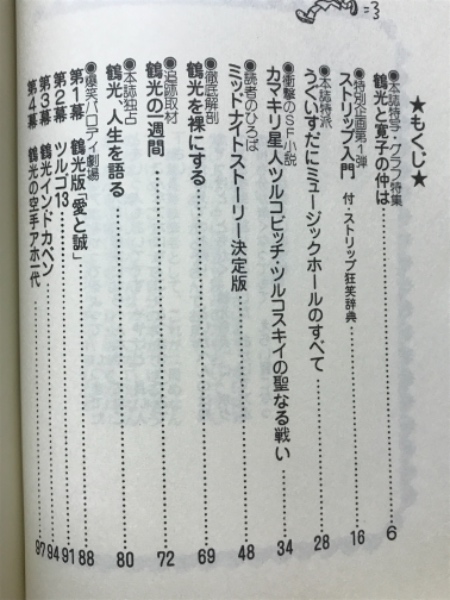 ★もくじ★
●本誌特写・グラフ特集
鶴光と寛子の仲は……6
●特別企画第1弾
ストリップ入門　付・ストリップ狂笑辞典……16
●本誌特派
うぐいすだにミュージックホールのすべて……28
●衝撃のSF小説
カマキリ星人ツルコビッチ・ツルコスキイの聖なる戦い……34
●読者のひろば
ミッドナイトストーリー決定版……48
●徹底解剖
鶴光を裸にする……69
●追跡取材
鶴光の一週間……72
●本誌独占
鶴光、人生を語る……80
●爆笑パロディ劇場
第1幕　鶴光版「愛と誠」……88
第2幕　ツルゴ13……91
第3幕　鶴光インドカペン……94
第4幕　鶴光の空手アホ一代……97